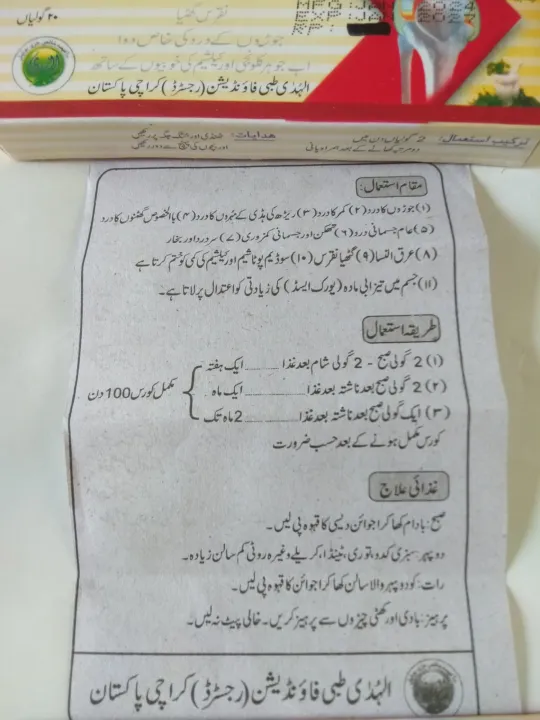 ۲۰ گولیاں
نقرس گنٹھیا
جوڑوں کے درد کی خاص دوا
الہُدٰی طبی فاؤنڈیشن (رجسٹرڈ) کراچی پاکستان
ترکیب استعمال: 2 گولیاں دن میں
ہدایات: ٹھنڈی اور خشک جگہ پر رکھیں
اور بچوں کی پہنچ سے دور رکھیں
مقام استعمال:
(۱) جوڑوں کا درد (۲) کمر کا درد (۳) ریڑھ کی ہڈی کے مہروں کا درد (۴) بالخصوص گھٹنوں کا درد
(۵) عام جسمانی درد (۶) تھکن اور جسمانی کمزوری (۷) سردرد اور بخار
(۸) عرق النسا (۹) گنٹھیا نقرس (۱۰) سوڈیم پوٹاشیم اور کیلشیم کی کمی کو ختم کرتا ہے
(۱۱) جسم میں تیزابی مادہ (یورک ایسڈ) کی زیادتی کو اعتدال پر لاتا ہے۔
طریقہ استعمال
(۱) 2 گولی صبح - 2 گولی شام بعد غذا ............ ایک ہفتہ
(۲) 2 گولی صبح بعد ناشتہ بعد غذا ............ ایک ماہ
مکمل کورس 100 دن
(۳) ایک گولی صبح بعد ناشتہ بعد غذا ............ 2 ماہ تک
کورس مکمل ہونے کے بعد حسب ضرورت
غذائی علاج
صبح: بادام کھا کر اجوائن دیسی کا قہوہ پی لیں۔
دوپہر: سبزی کدو، توری، ٹینڈا، کریلے وغیرہ روٹی کم سالن زیادہ۔
رات: کو دوپہر والا سالن کھا کر اجوائن کا قہوہ پی لیں۔
پرہیز: بادی اور کھٹی چیزوں سے پرہیز کریں۔ خالی پیٹ نہ لیں۔
الہُدٰی طبی فاؤنڈیشن (رجسٹرڈ) کراچی پاکستان